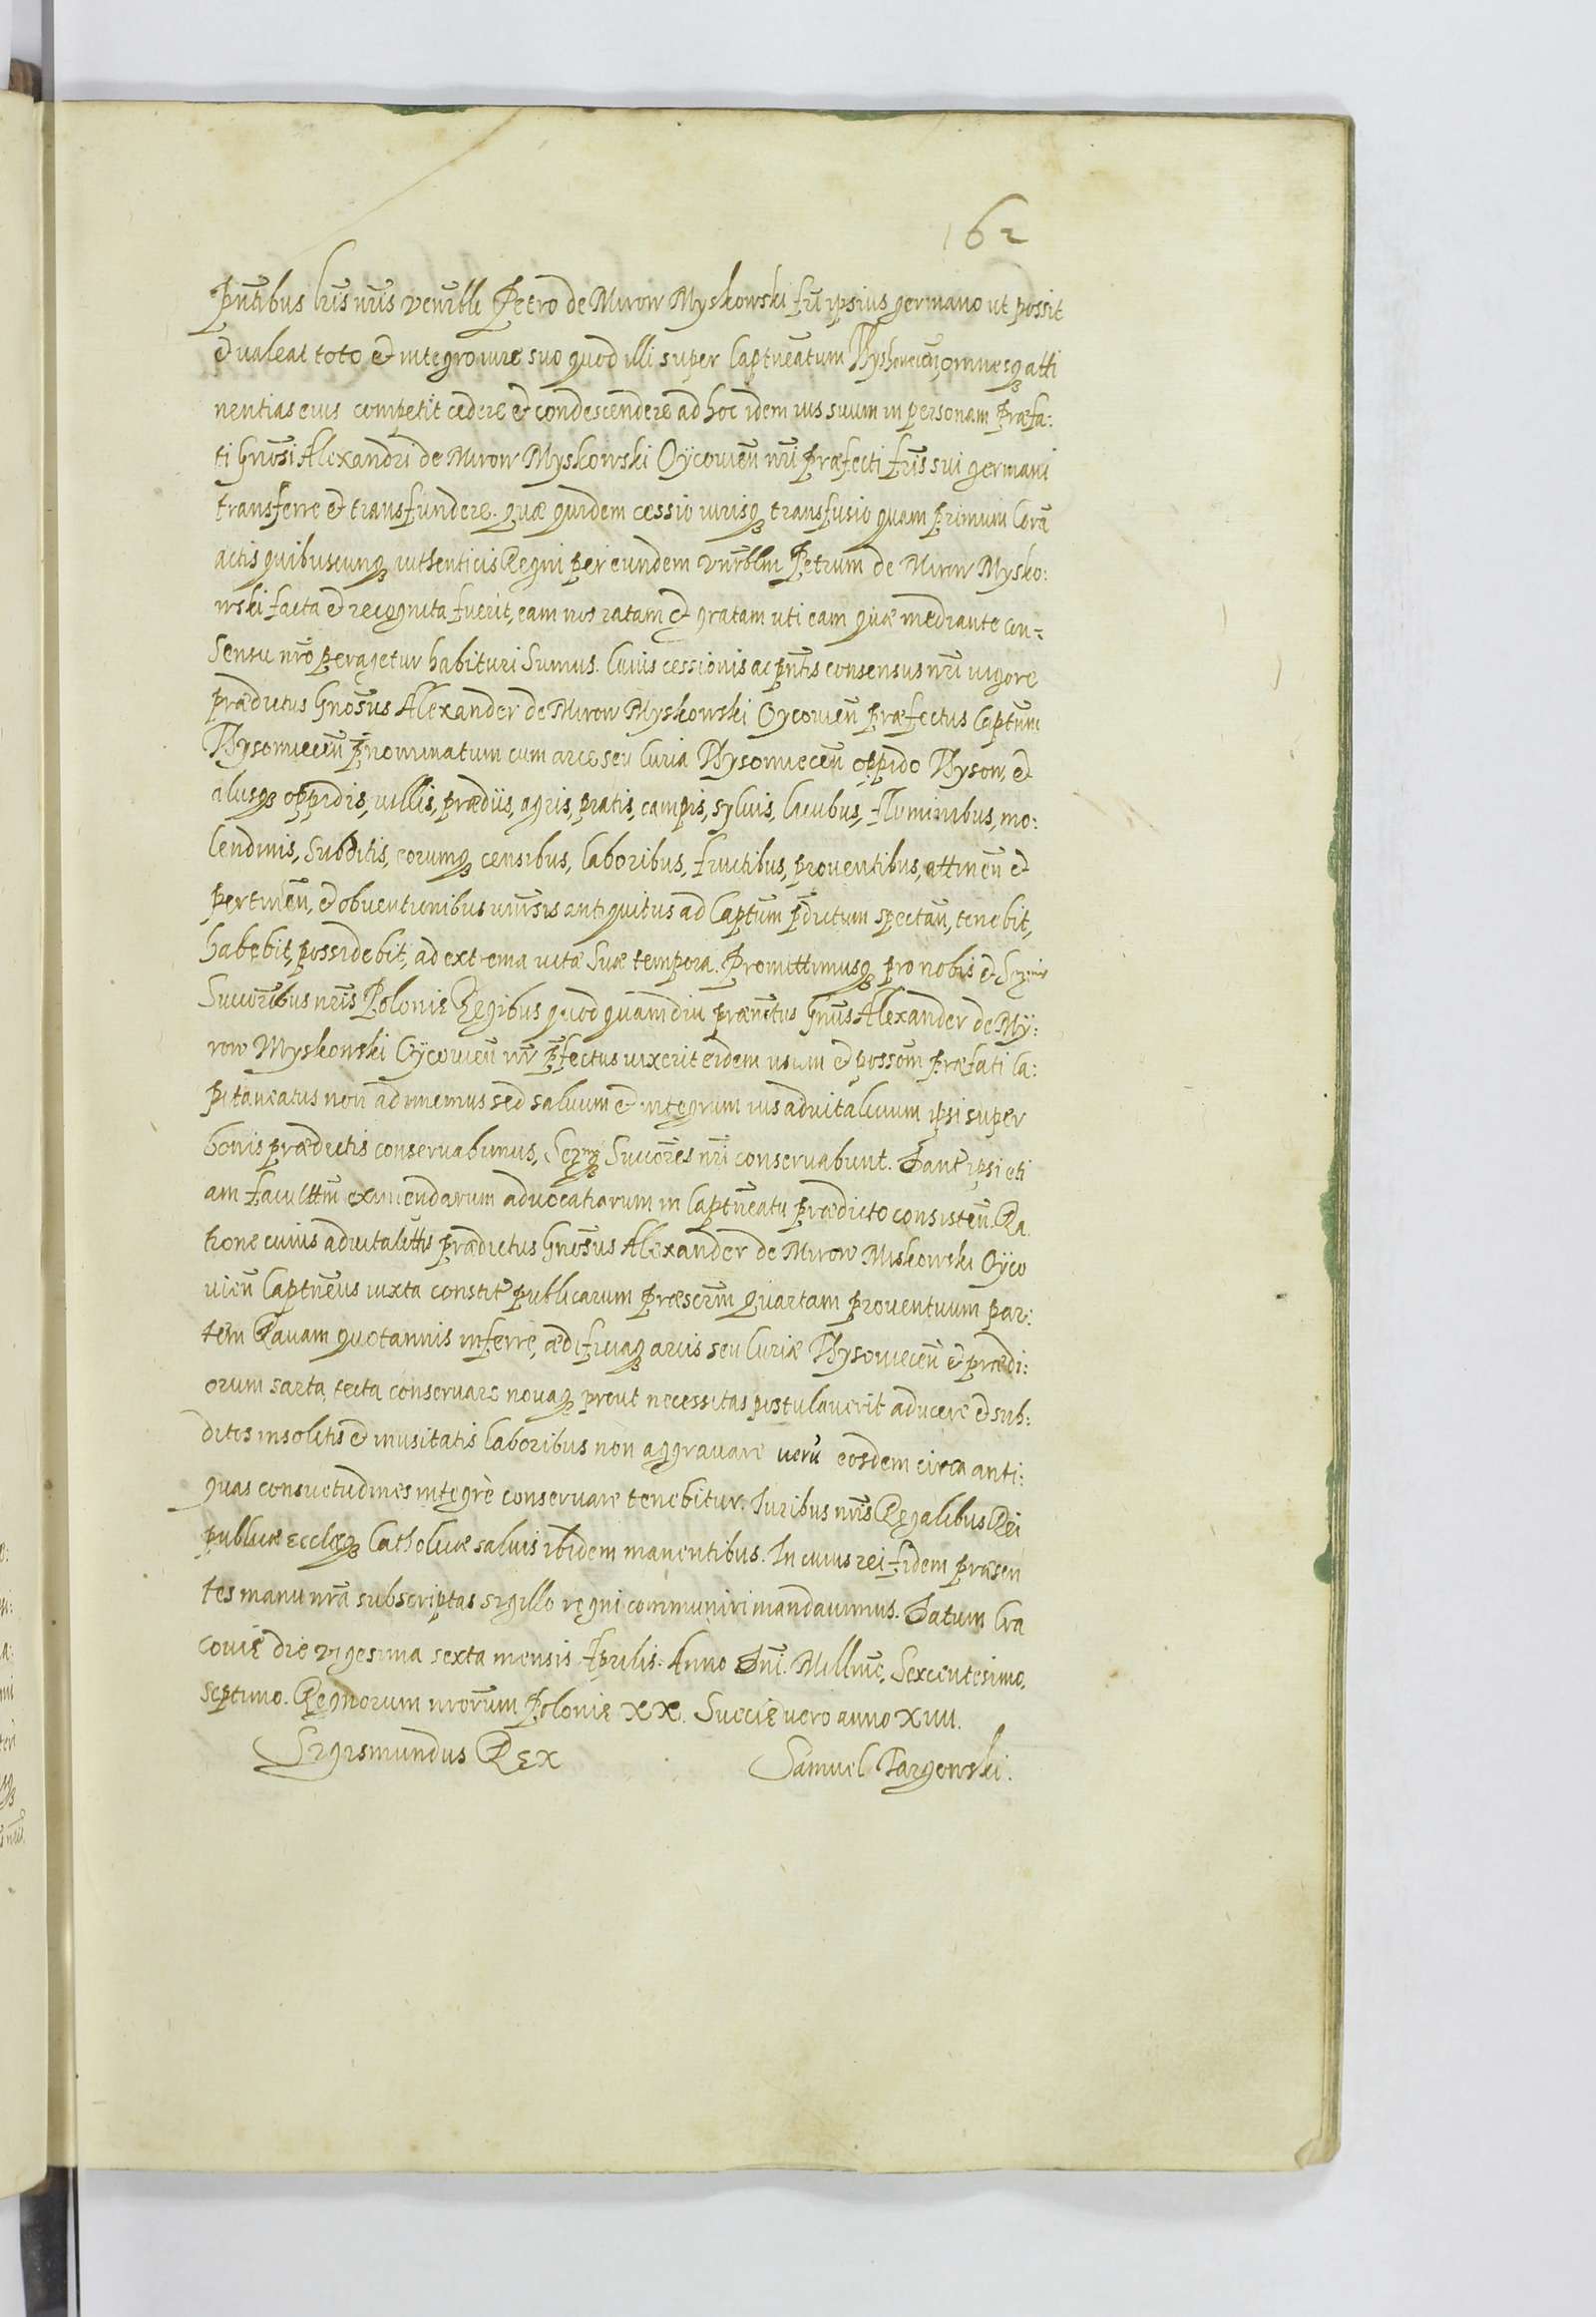 162
pñtibus lr̃is nr̃is venr̃bli Petro de Mirow Myskowski fr̃i ipsius germano ut possit
et valeat toto et integro iure suo quod illi super Captñeatum Thyszoviceñ, omnesq̃ atti
nentias eius competit cedere et condescendere ad hoc idem ius suum in personam præfa:
ti Gnõsi Alexandri de Mirow Myskowski Oycovieñ nr̃i præfecti fr̃is sui germani
transferre et transfundere. quæ quidem cessio iurisq̃ transfusio quam primum Corã
actis quibuscunq̃ authenticis Regni per eundem vnr̃blm Petrum de Mirow Mysko:
wski facta et recognita fuerit, eam nos ratam et gratam uti eam quæ mediante con=
sensu nr̃o peragetur habituri sumus. Cuius cessionis ac pñtis consensus nr̃i vigore
prædictus Gnõsus Alexander de Mirow Myskowski Oycovieñ præfectus Captũm
Thysowieceñ pñominatum cum arce seu Curia Thysowieceñ oppido Thysow, et
alijsq̃ oppidis, villis, prædiis, agris, pratis, campis, sylvis, lacubus, fluminibus, mo:
lendinis, subditis, eorumq̃ censibus, laboribus, fructibus, proventibus, attineñ et
pertineñ, et obventionibus univr̃sis antiquitus ad Captũm p̃dictum spectañ, tenebit,
habebit, possidebit, ad extrema vitæ suæ tempora. Promittimusq̃ pro nobis et Serẽnis
Succõribus nr̃is Polonię Regibus quod quamdiu prænctus Gnũs Alexander de My:
row Myskowski Oycovieñ nr̃ p̃fectus vixerit eidem usum et possõm præfati Ca:
pitaneatus non adimemus sed salvum et integrum ius advitalicium ipsi super
bonis prædictis conservabimus, Serẽmiq̃ Succõres nr̃i conservabunt. Dantr̃ ipsi eti
am facultm̃ eximendarum advocatiarum in Captñeatu prædicto consisteñ. Ra
tione cuius advitalittis prædictus Gnõsus Alexander de Mirow Miskowski Oyco
vieñ Captñeus iuxta constitr̃ publicarum præscrm̃ quartam proventuum par:
tem Ravam quotannis inferre, ædificiaq̃ arcis seu Curiæ Thysowieceñ et prædi:
orum sarta, tecta conservare novaq̃ prout necessitas postulaverit aducere et sub:
ditos insolitis et inusitatis laboribus non aggravare verũ eosdem circa anti:
quas consuetudines integrè conservare tenebitur. Iuribus nr̃is Regalibus Rei
publicæ ecclæq̃ Catholicæ salvis ibidem manentibus. In cuius rei fidem præsen
tes manu nr̃a subscriptas sigillo regni communiri mandavimus. Datum Cra
covię die vigesima sexta mensis Aprilis. Anno Dñi. Millmõ, Sexcentesimo,
septimo. Regnorum nrõrum Polonię XX. Suecię vero anno XIIII.
Sigismundus Rex
Samuel Targowski.